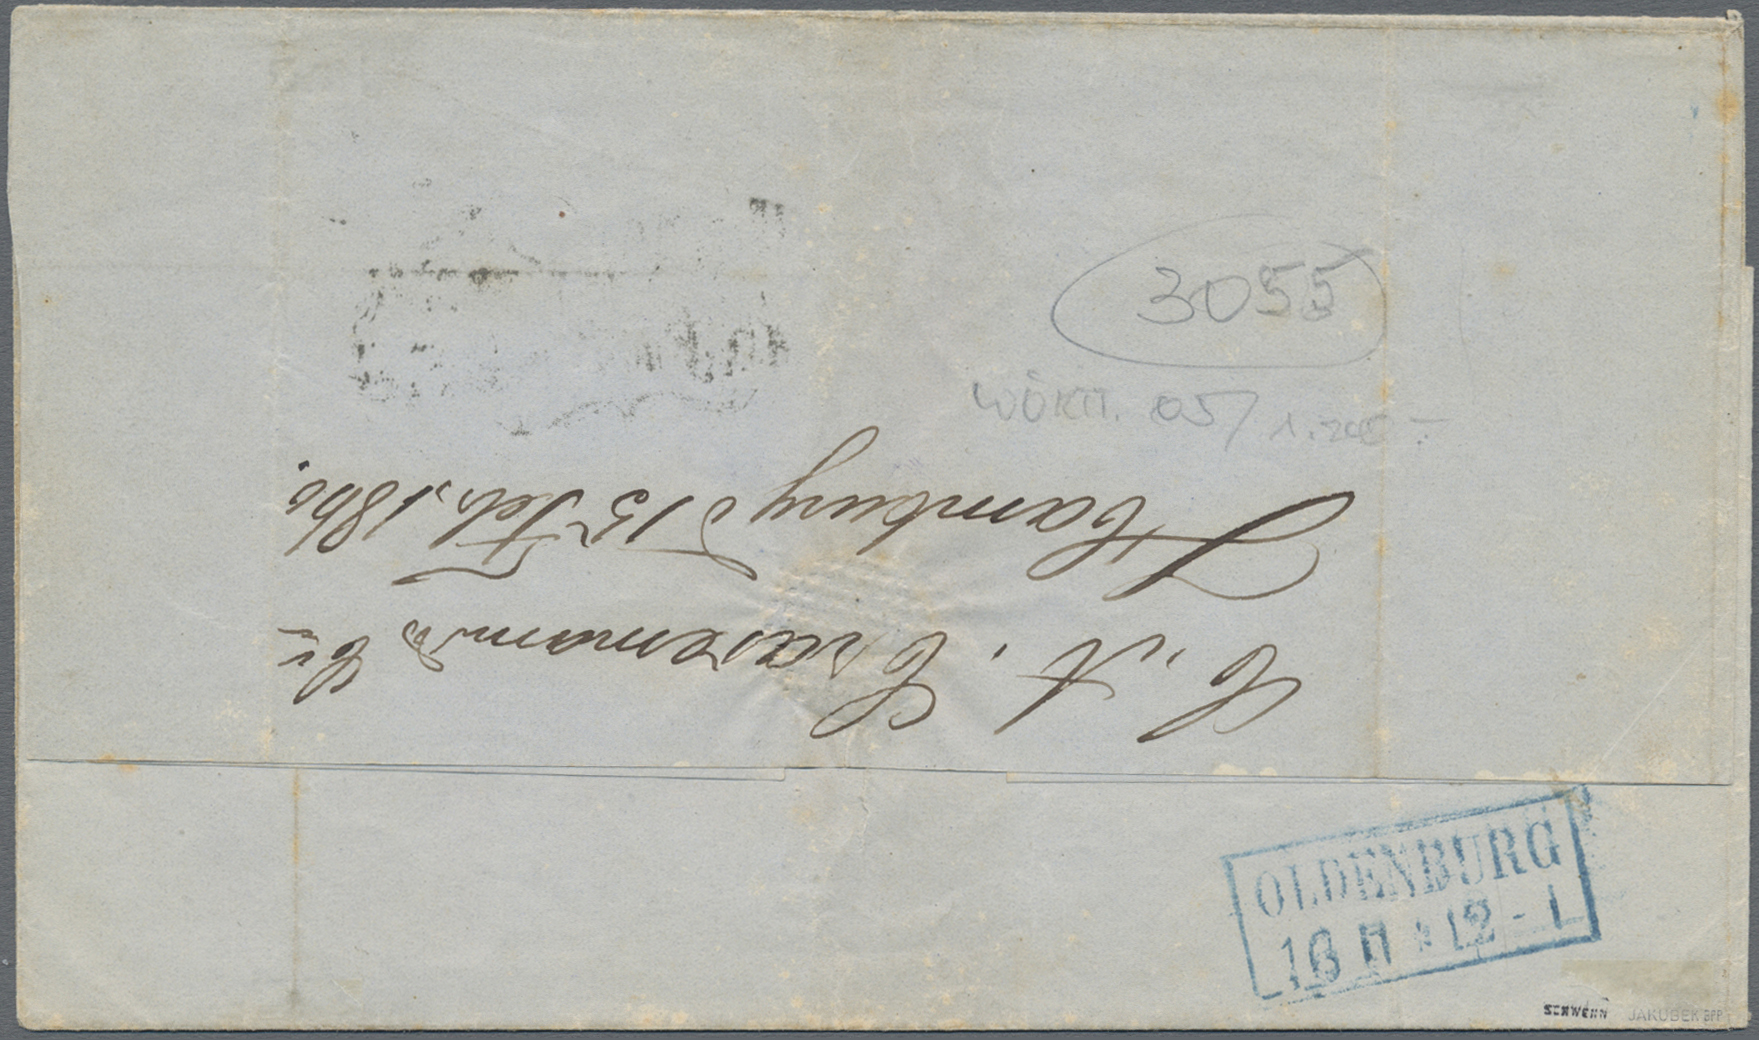 3055
WÜRTT. 05/ 1.200 -
Hamburg d 15 Feb. 1860.
C. A. & Co
OLDENBURG
16 II * 12 - 1
SCHWENN JAKUBEK BPP